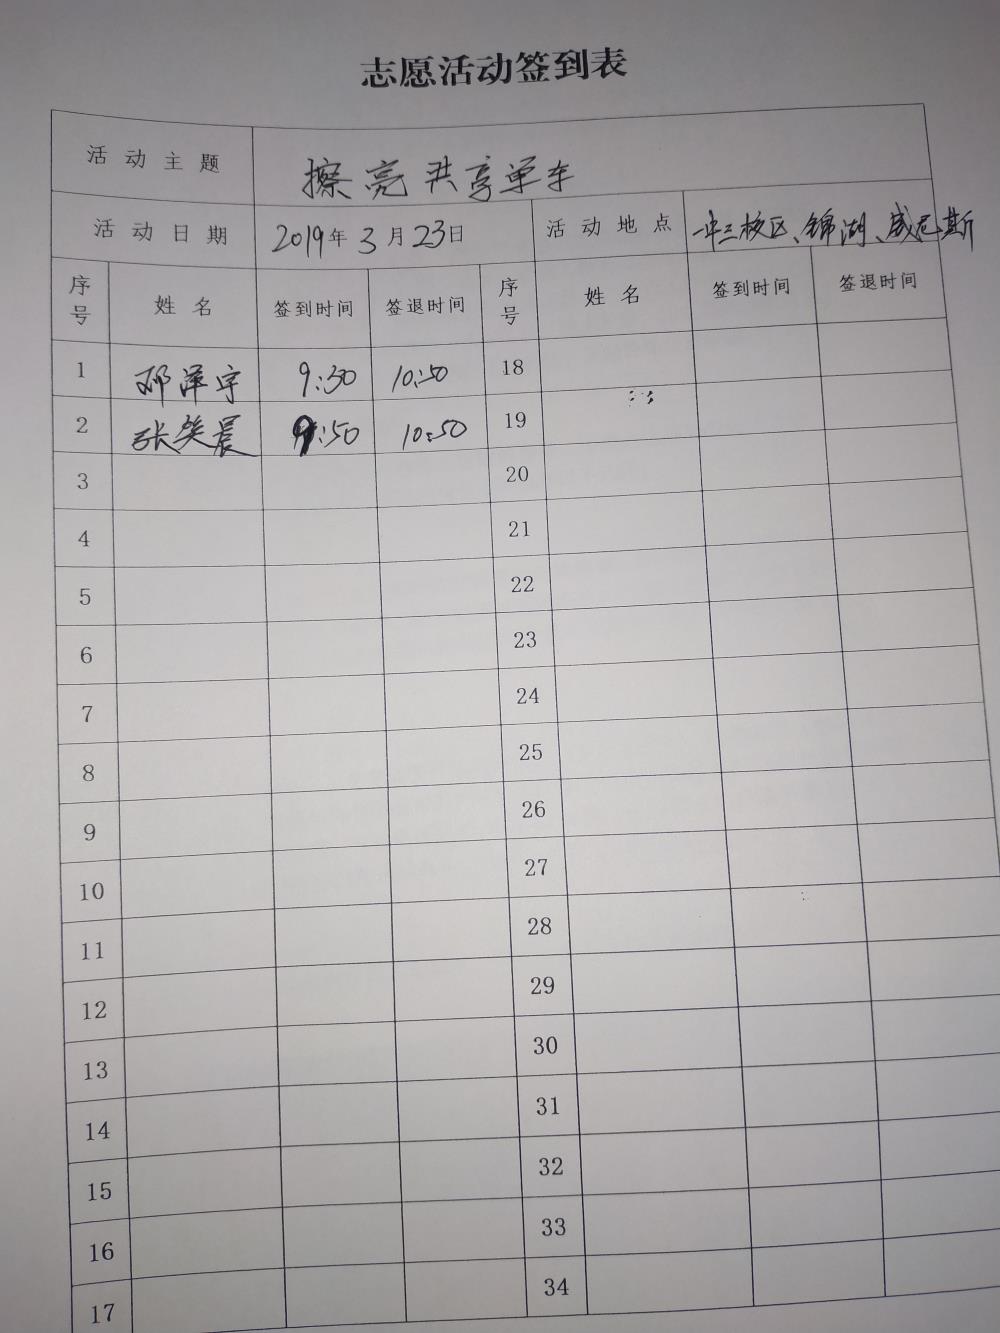 志愿活动签到表
活动主题 擦亮共享单车
活动日期 2019年3月23日 活动地点 一中三校区、锦湖、威尼斯
序号 姓名 签到时间 签退时间 序号 姓名 签到时间 签退时间
1 邓泽宇 9:30 10:50 18
2 张笑晨 9:50 10:50 19
3 20
4 21
5 22
6 23
7 24
8 25
9 26
10 27
11 28
12 29
13 30
14 31
15 32
16 33
17 34